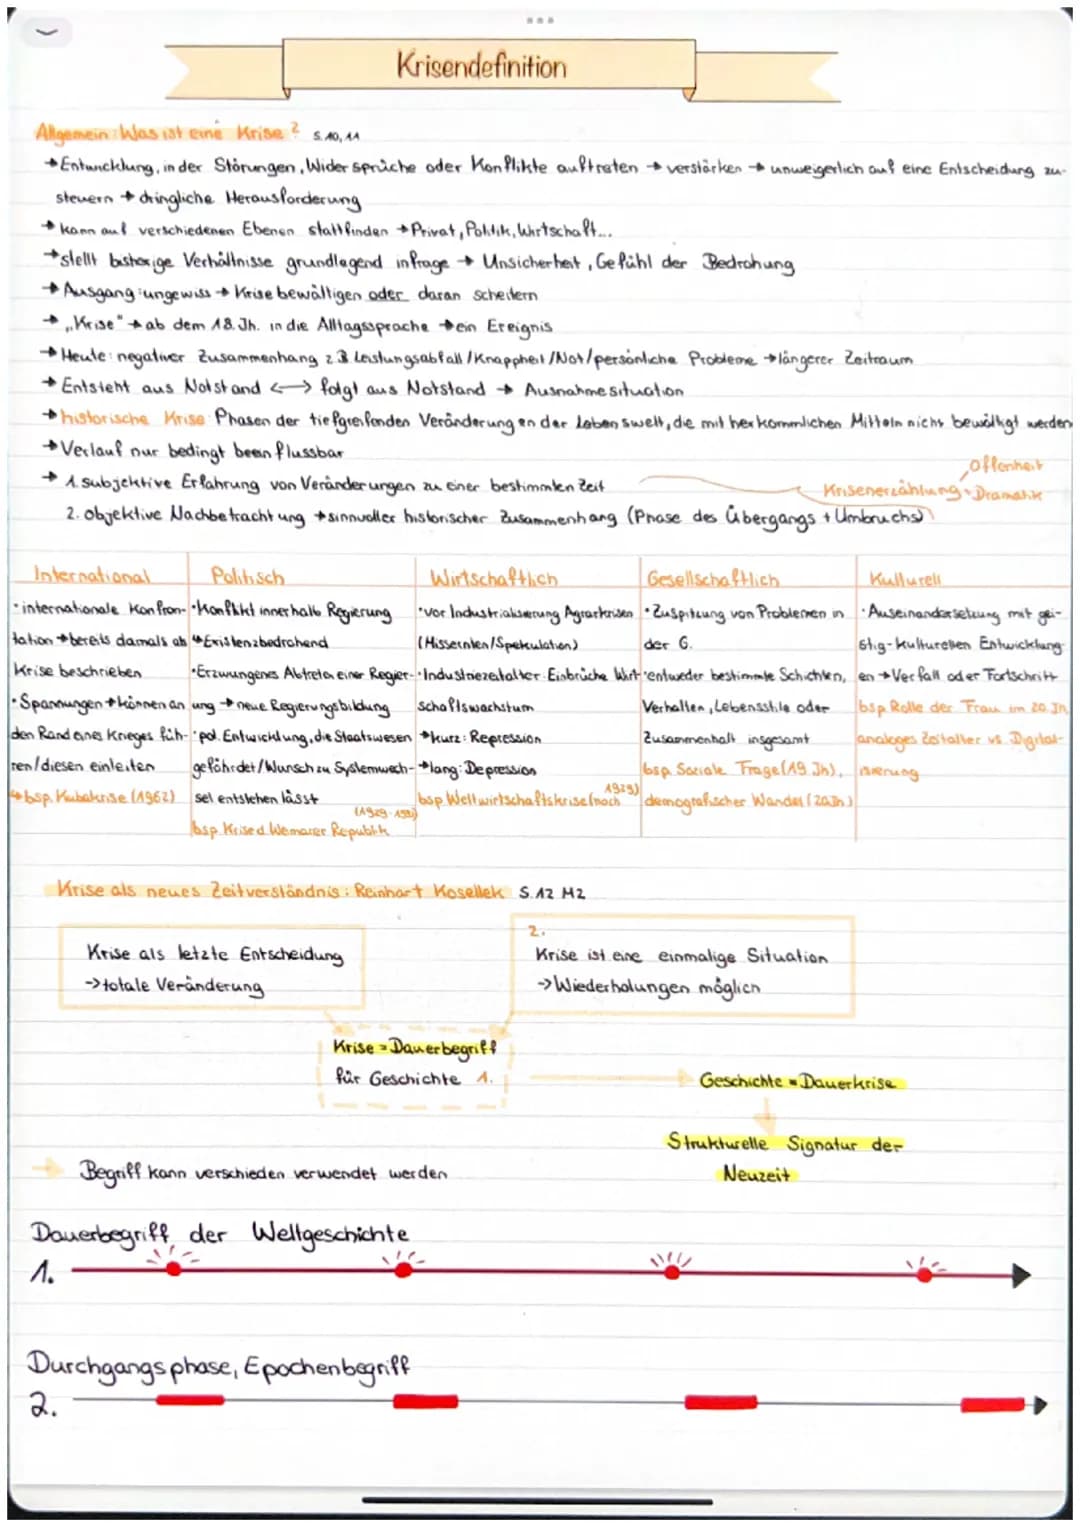 Krisendefinition
Allgemein: Was ist eine Krise? S. 10, 11
→ Entwicklung, in der Störungen, Widersprüche oder Konflikte auftreten → verstärken → unweigerlich auf eine Entscheidung zu-
steuern → dringliche Herausforderung
→ kann auf verschiedenen Ebenen stattfinden → Privat, Politik, Wirtschaft...
→ stellt bisherige Verhältnisse grundlegend infrage → Unsicherheit, Gefühl der Bedrohung
→ Ausgang: ungewiss → Krise bewältigen oder daran scheitern
→ „Krise" → ab dem 18. Jh. in die Alltagssprache → ein Ereignis
→ Heute: negativer Zusammenhang z.B Leistungsabfall/Knappheit/Not/persönliche Probleme → längerer Zeitraum
→ Entsteht aus Notstand ⟷ folgt aus Notstand → Ausnahmesituation
→ historische Krise: Phasen der tiefgreifenden Veränderungen der Lebenswelt, die mit herkömmlichen Mitteln nicht bewältigt werden
→ Verlauf nur bedingt beeinflussbar
Offenheit
→ 1. subjektive Erfahrung von Veränderungen zu einer bestimmten Zeit
Krisenerzählung Dramatik
2. objektive Nachbetrachtung → sinnvoller historischer Zusammenhang (Phase des Übergangs + Umbruchs)
International
• internationale Konfron-
tation → bereits damals als
Krise beschrieben
• Spannungen → können an
den Rand eines Krieges füh-
ren/diesen einleiten
↳ bsp. Kubakrise (1962)
Politisch
• Konflikt innerhalb Regierung
↳ Existenzbedrohend
• Erzwungenes Abtreten einer Regier-
ung → neue Regierungsbildung
• pol. Entwicklung, die Staatswesen
gefährdet/Wunsch zu Systemwech-
sel entstehen lässt
bsp. Krise d. Weimarer Republik
Wirtschaftlich
• vor Industrialisierung Agrarkrisen
(Missernten/Spekulation)
• Industriezeitalter: Einbrüche Wirt-
schaftswachstum
→ kurz: Repression
→ lang: Depression
bsp. Weltwirtschaftskrise (nach 1929)
Gesellschaftlich
• Zuspitzung von Problemen in
der G.
• entweder bestimmte Schichten,
Verhalten, Lebensstile oder
Zusammenhalt insgesamt
bsp. Soziale Frage (19. Jh),
demografischer Wandel (20Jh)
Kulturell
• Auseinandersetzung mit gei-
stig-kulturellen Entwicklung-
en → Verfall oder Fortschritt
bsp Rolle der Frau im 20. Jh,
analoges Zeitalter vs. Digital-
isierung
Krise als neues Zeitverständnis: Reinhart Kosellek S. 12 M2
Krise als letzte Entscheidung
-> totale Veränderung
2.
Krise ist eine einmalige Situation
-> Wiederholungen möglich
Krise = Dauerbegriff
für Geschichte 1.
Geschichte = Dauerkrise
Strukturelle Signatur der
Neuzeit
→ Begriff kann verschieden verwendet werden
Dauerbegriff der Weltgeschichte
1.
Durchgangsphase, Epochenbegriff
2.